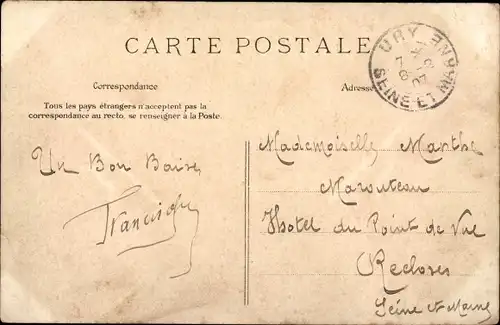 CARTE POSTALE
URY
SEINE-ET-MARNE
Correspondance
Adresse
Tous les pays étrangers n'acceptent pas la
correspondance au recto, se renseigner à la Poste.
Un Bon Baiser
Mademoiselle Marthe
Marouteau
Hotel du Point de Vue
Recloses
Seine et Marne